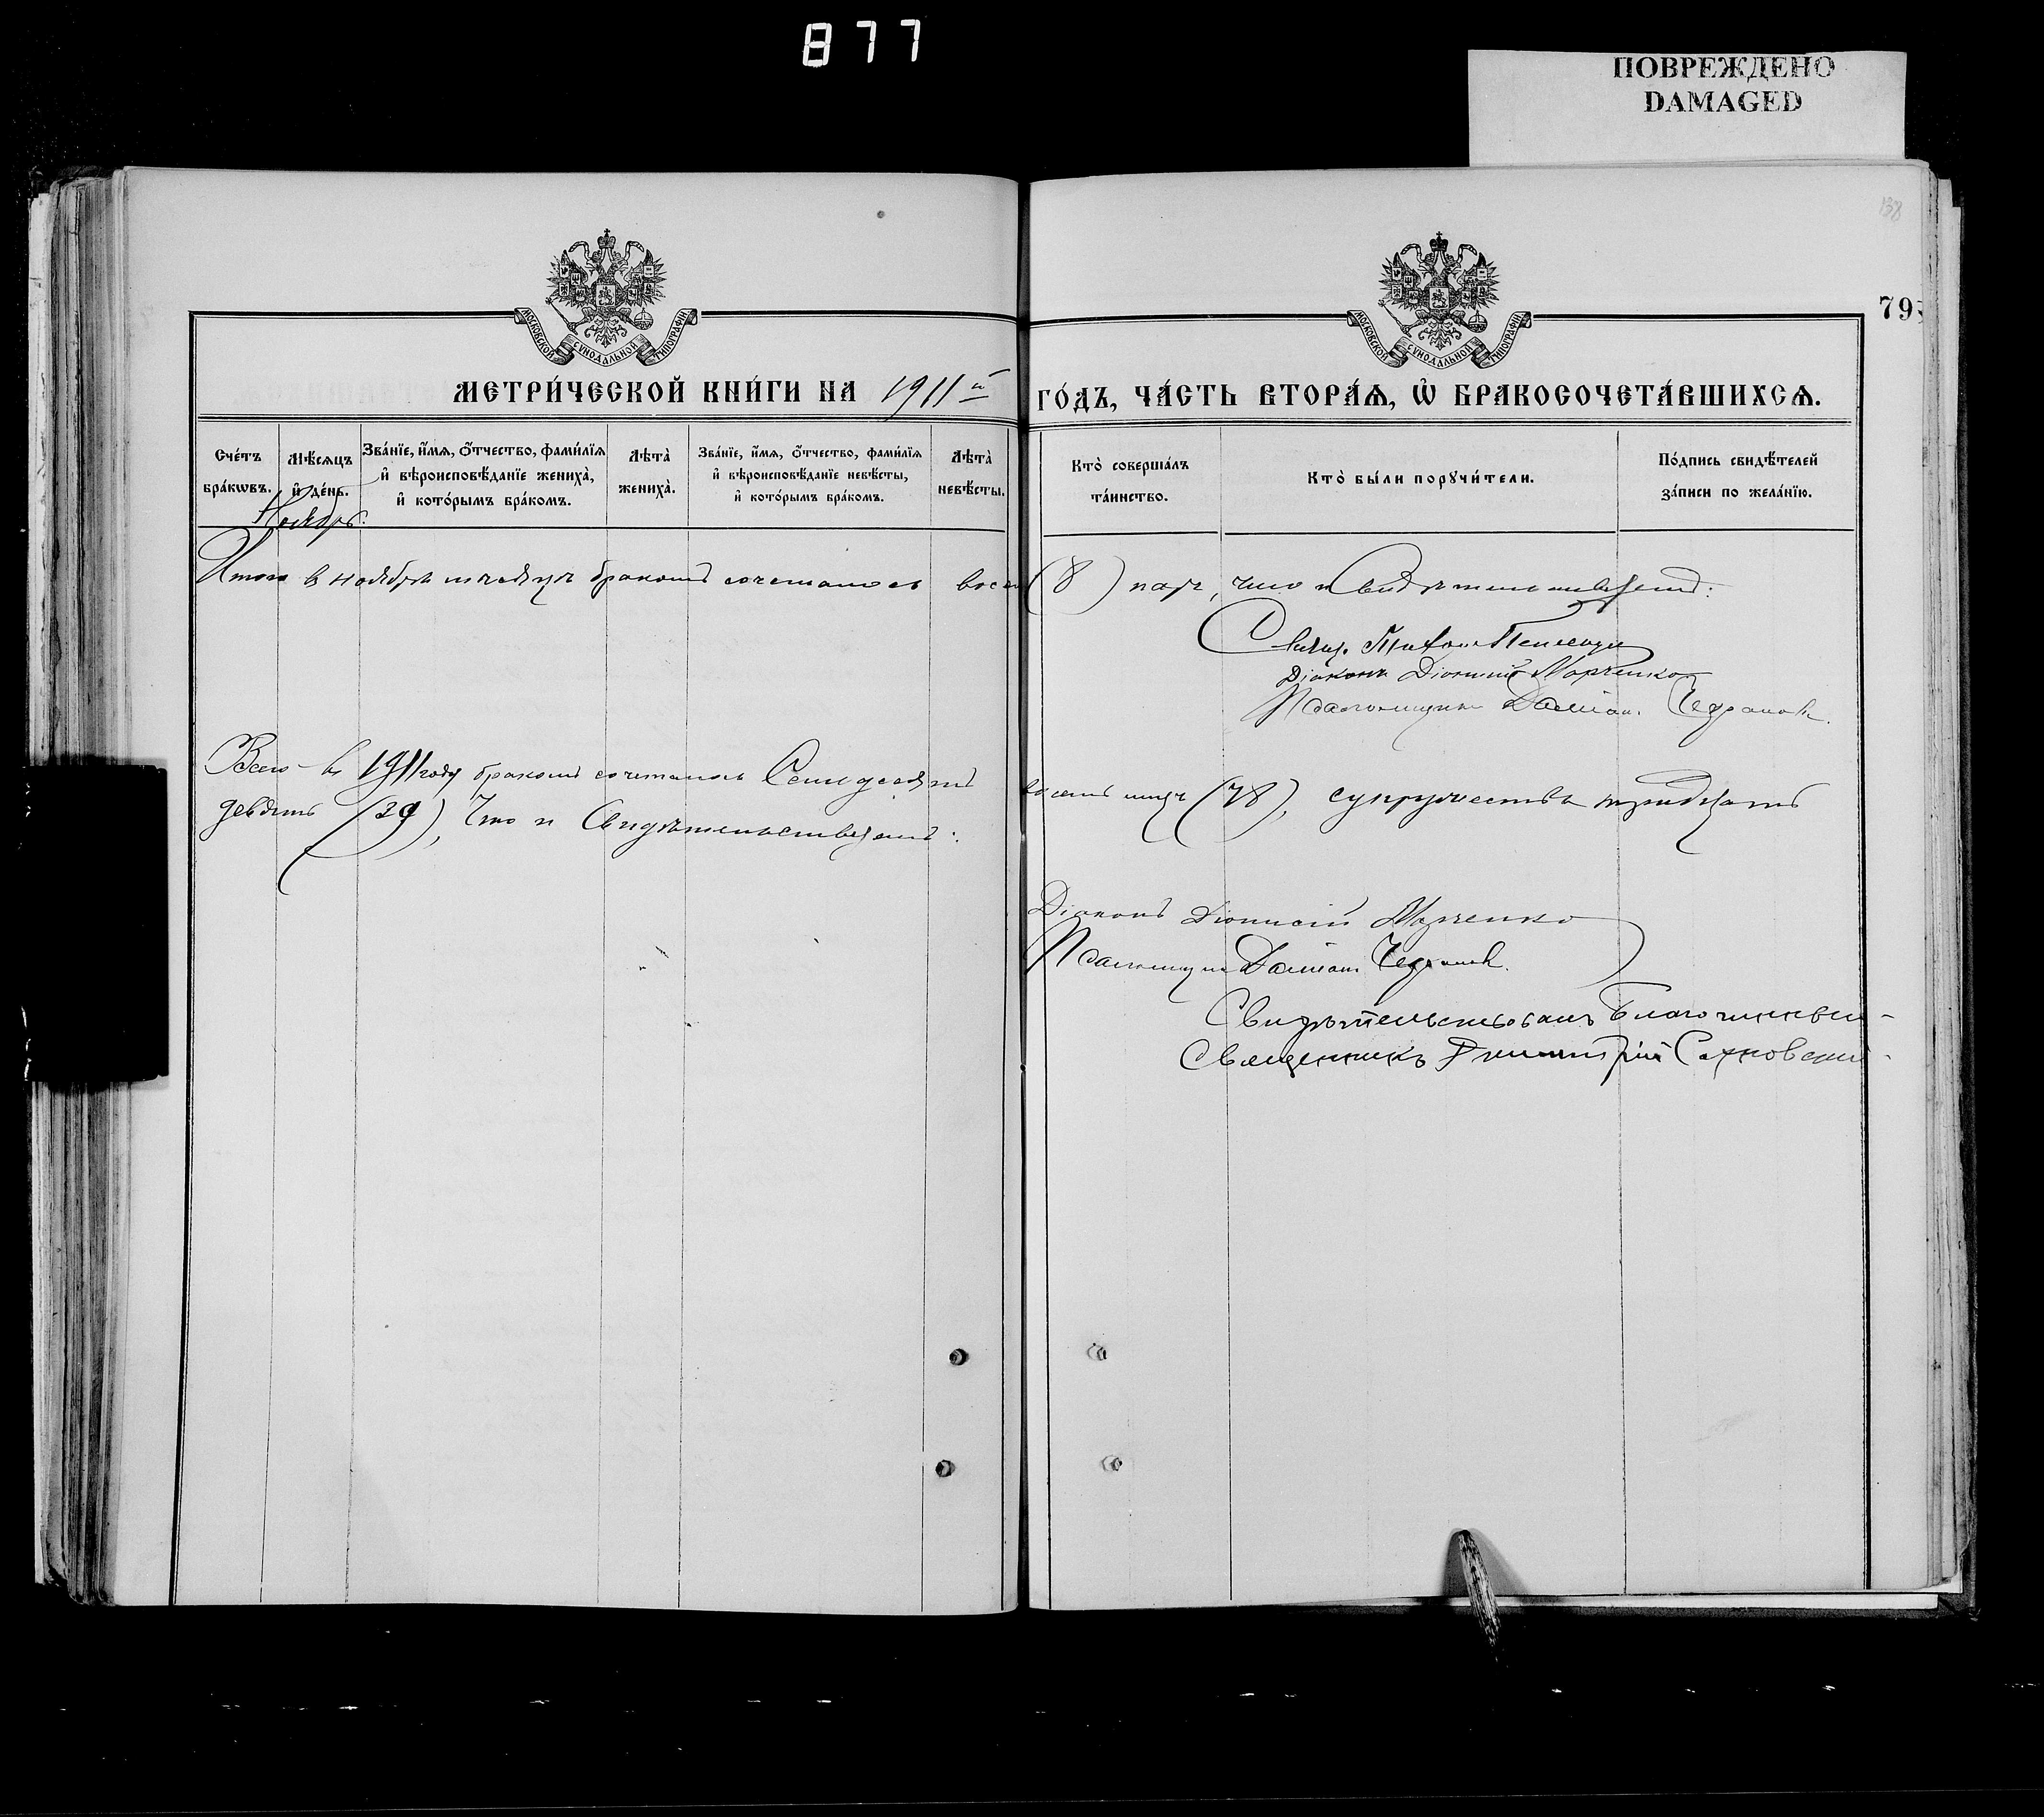 877
ПОВРЕЖДЕНО
DAMAGED
138
79
МОСКОВСКОЙ СѴНОДАЛЬНОЙ ТИПОГРАФІИ
МОСКОВСКОЙ СѴНОДАЛЬНОЙ ТИПОГРАФІИ
МЕТРИ́ЧЕСКОЙ КНИ́ГИ НА 1911й ГО́ДЪ, ЧА́СТЬ ВТОРА́Ѧ, Ѽ БРАКОСОЧЕТА́ВШИХСѦ.
Сче́тъ бра́кѡвъ.
Мѣ́сѧцъ и҆ де́нь.
Зва́нїе, и҆́мѧ, ѻ҆́тчество, фами́лїѧ и҆ вѣроисповѣ́данїе жениха̀, и҆ кото́рымъ бра́комъ.
Лѣ́та̀ жениха̀.
Зва́нїе, и҆́мѧ, ѻ҆́тчество, фами́лїѧ и҆ вѣроисповѣ́данїе невѣ́сты, и҆ кото́рымъ бра́комъ.
Лѣ́та̀ невѣ́сты.
Кто̀ соверша́лъ та́инство.
Кто̀ бы́ли порꙋчи́тели.
По́дпись свидѣ́телей за́писи по жела́нїю.
Ноябрь.
Итого в ноябрѣ мѣсяцѣ бракомъ сочеталось восем (8) паръ, что и свидѣтельствуемъ:
Свящ.
Діаконъ Діонисій Марченко
Псаломщикъ Даміан
Всего въ 1911 году бракомъ сочеталось Семьдесятъ восемь лицъ (78), супружества тридцать
девять (39), Что и Свидѣтельствуемъ:
Діаконъ Діонисій Марченко
Псаломщикъ Даміан
Свидѣтельствовалъ Благочинный
Священникъ Димитрій Сахновскій